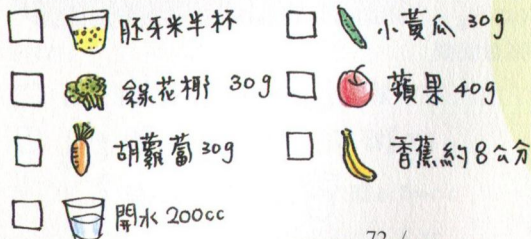 胚牙米半杯
綠花椰 30g
胡蘿蔔 30g
開水 200cc
小黃瓜 30g
蘋果 40g
香蕉約8公分
72 /